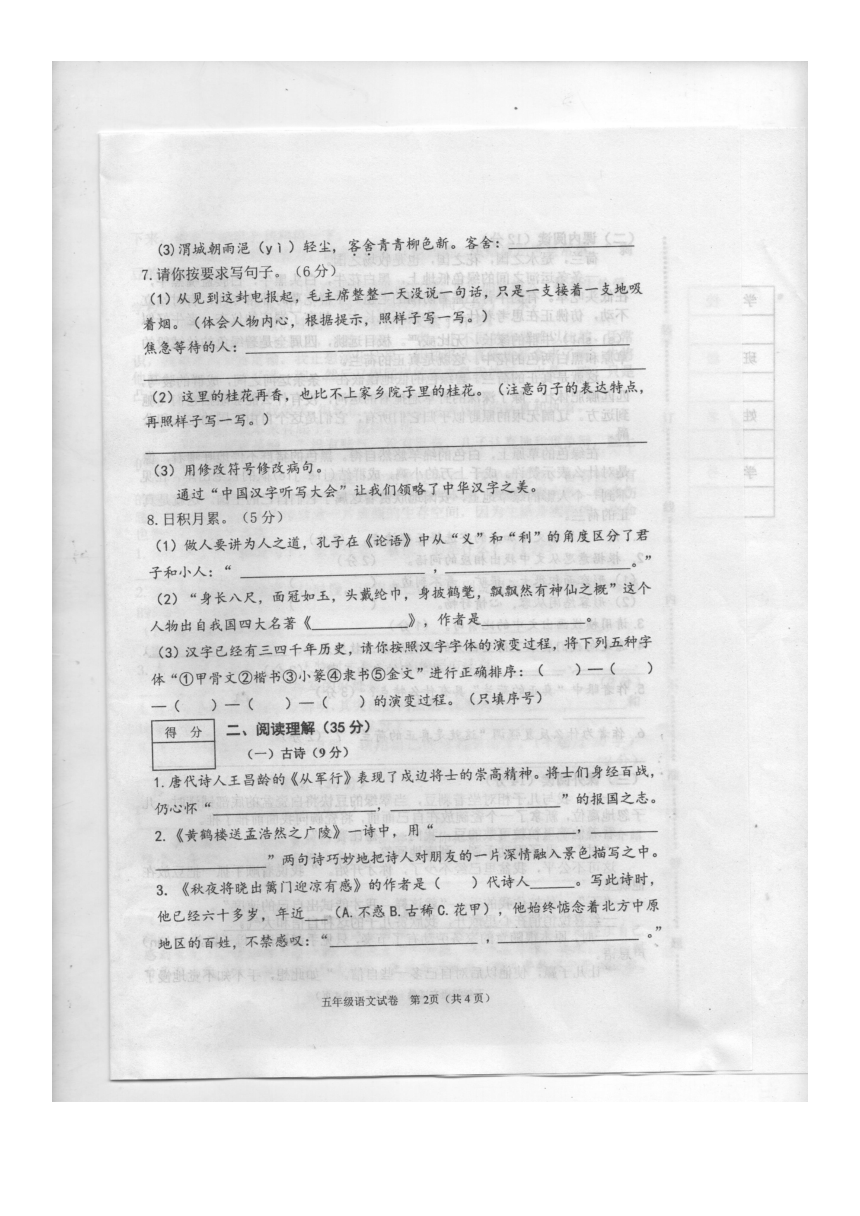 (3)渭城朝雨浥（yì）轻尘，客舍青青柳色新。客舍：
7.请你按要求写句子。（6分）
（1）从见到这封电报起，毛主席整整一天没说一句话，只是一支接着一支地吸
着烟。（体会人物内心，根据提示，照样子写一写。）
焦急等待的人：
（2）这里的桂花再香，也比不上家乡院子里的桂花。（注意句子的表达特点，
再照样子写一写。）
（3）用修改符号修改病句。
通过“中国汉字听写大会”让我们领略了中华汉字之美。
8.日积月累。（5分）
（1）做人要讲为人之道，孔子在《论语》中从“义”和“利”的角度区分了君
子和小人：“ ， 。”
（2）“身长八尺，面冠如玉，头戴纶巾，身披鹤氅，飘飘然有神仙之概”这个
人物出自我国四大名著《 》，作者是 。
（3）汉字已经有三四千年历史，请你按照汉字字体的演变过程，将下列五种字
体“①甲骨文②楷书③小篆④隶书⑤金文”进行正确排序：（ ）—（ ）
—（ ）—（ ）—（ ）的演变过程。（只填序号）
得 分
二、阅读理解（35分）
（一）古诗（9分）
1.唐代诗人王昌龄的《从军行》表现了戍边将士的崇高精神。将士们身经百战，
仍心怀“ ， ”的报国之志。
2.《黄鹤楼送孟浩然之广陵》一诗中，用“ ，
”两句诗巧妙地把诗人对朋友的一片深情融入景色描写之中。
3.《秋夜将晓出篱门迎凉有感》的作者是（ ）代诗人 。写此诗时，
他已经六十多岁，年近 （A.不惑 B.古稀 C.花甲），他始终惦念着北方中原
地区的百姓，不禁感叹：“ ， 。”
五年级语文试卷 第2页（共4页）